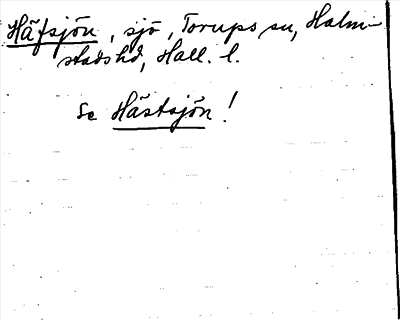 Häfsjön, sjö, Torups sn, Halm-
stads hd, Hall. l.
Se Hästsjön!